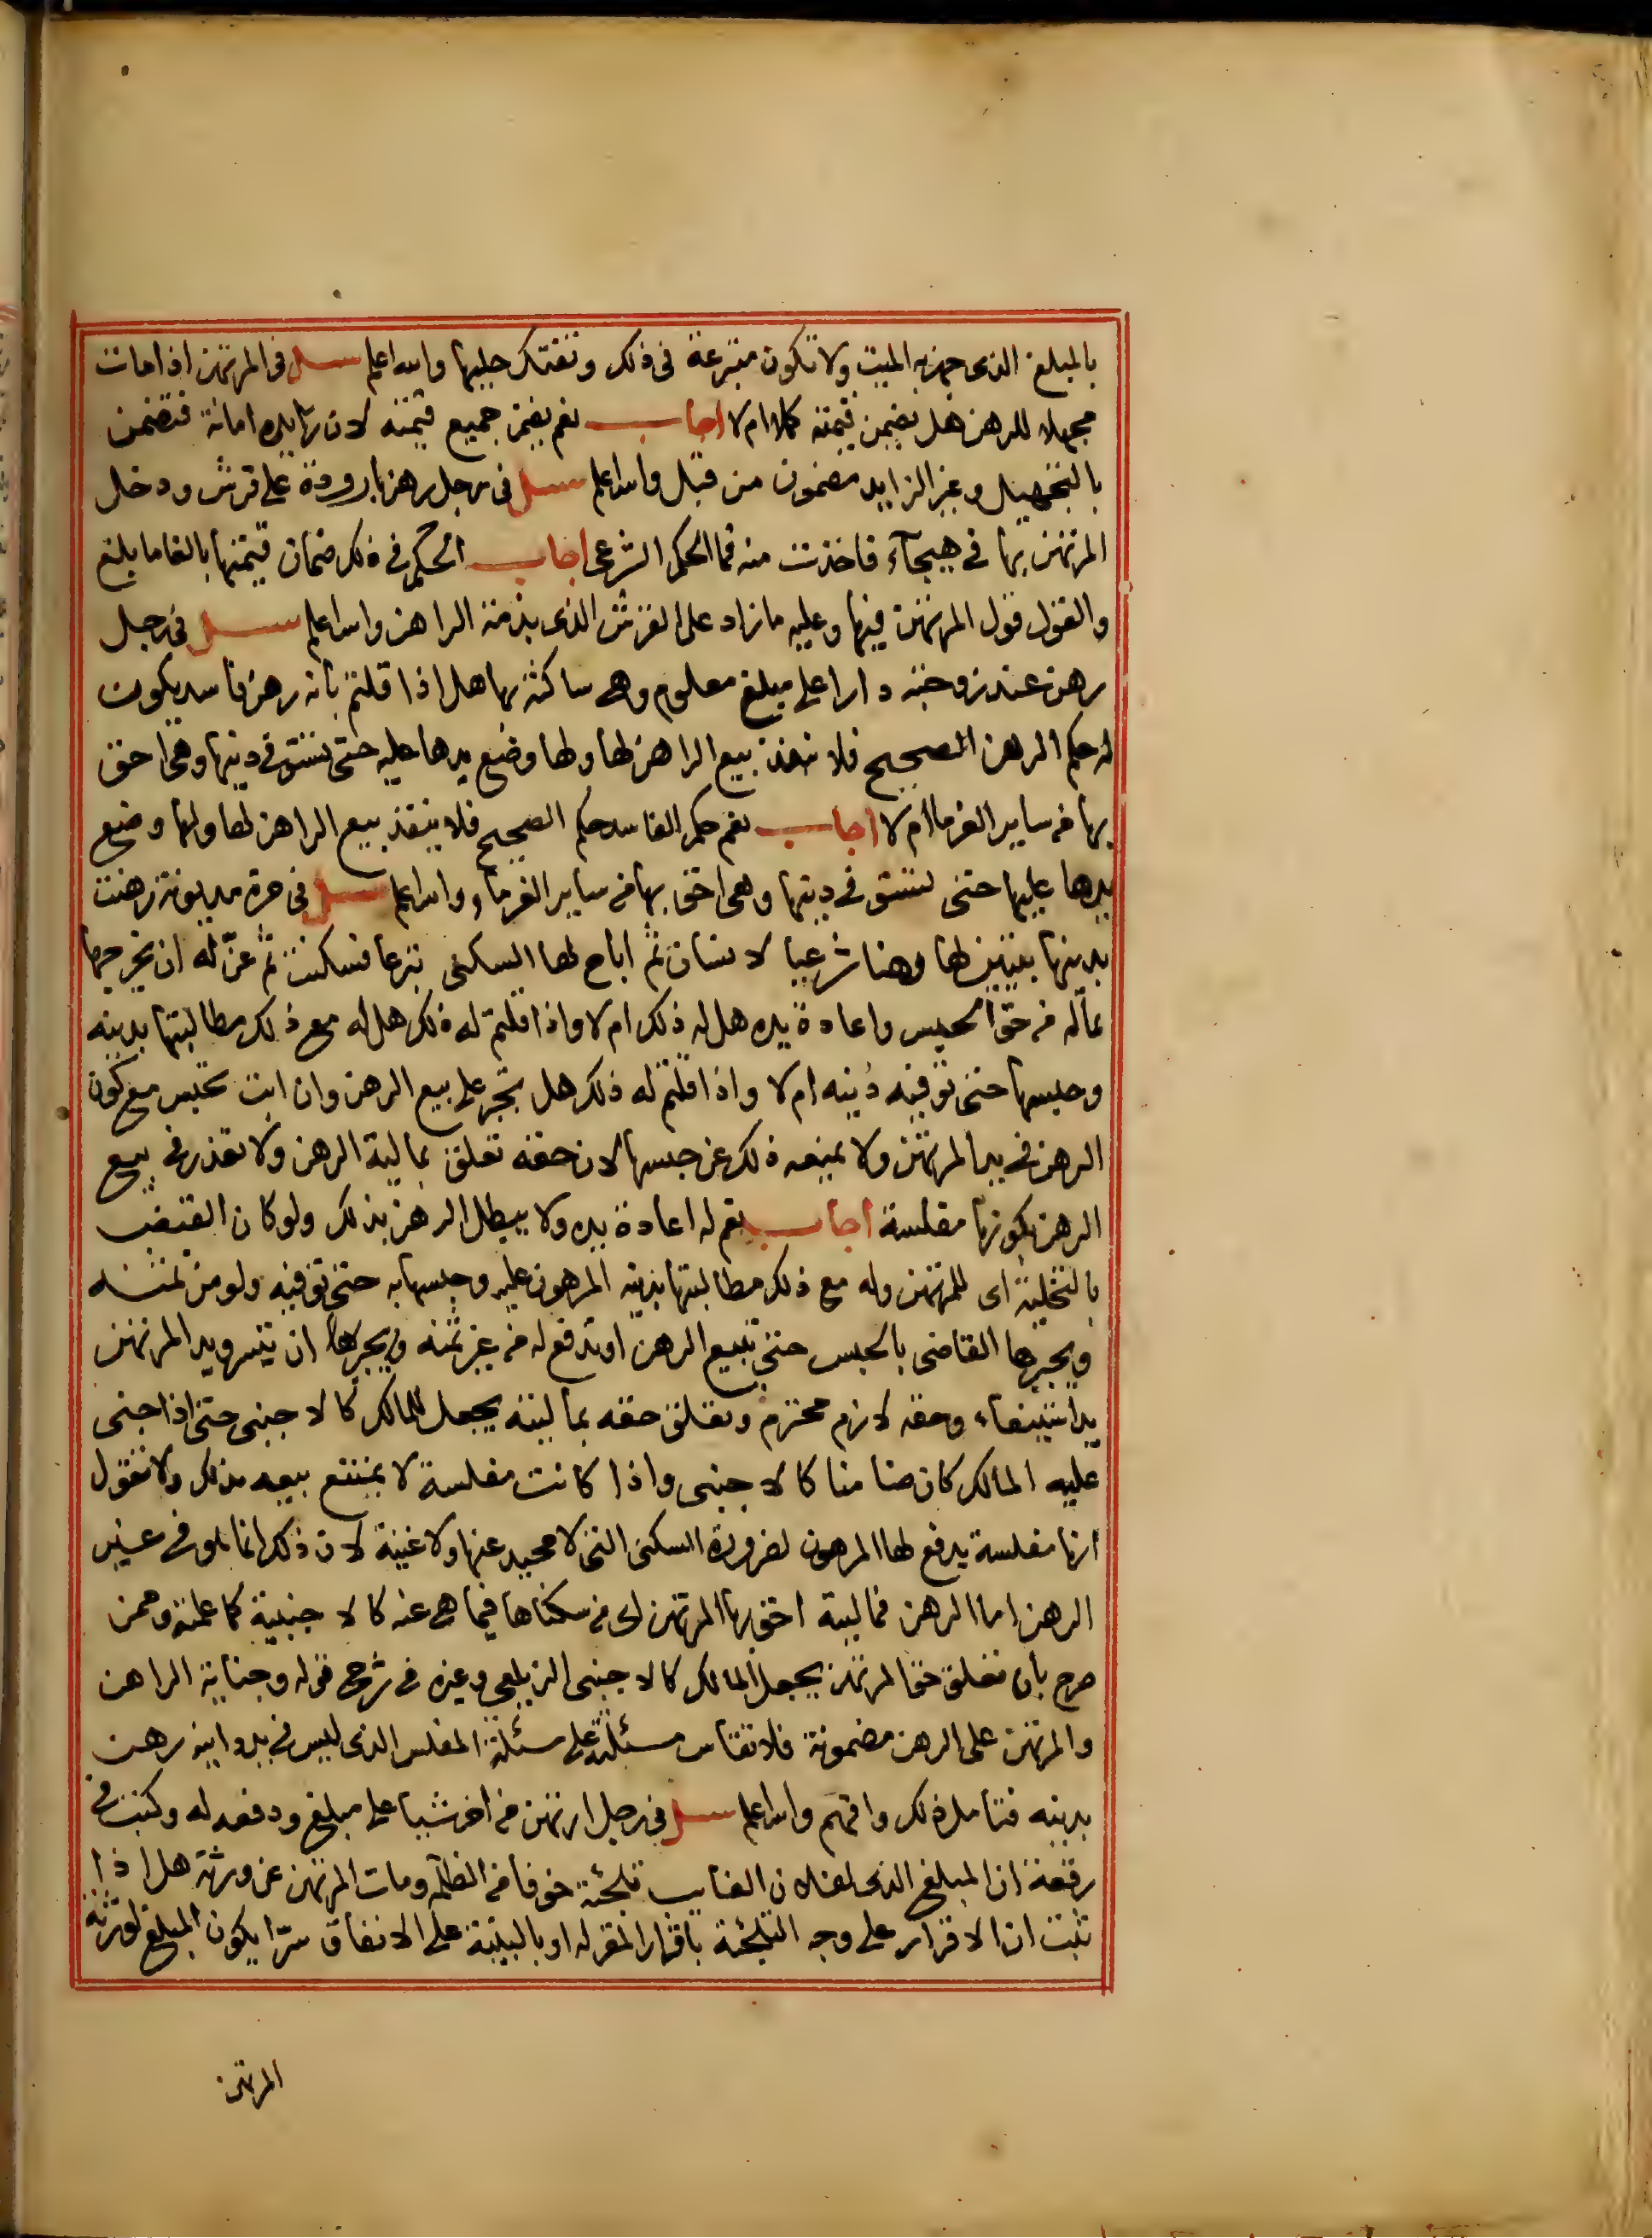 بالمبلغ الذى جهز به الميت ولا تكون متبرعة فى ذلك وتفتك حليها والله اعلم سئل فى المرتهن اذا مات
مجهلا للرهن هل يضمن قيمته كملا ام لا اجاب نعم يضمن جميع قيمته لان زايده امانة فتضمن
بالتجهيل وغير الزايد مضمون من قبل والله اعلم سئل فى رجل رهن بارودة على قرش ودخل
المرتهن بها فى هيجآء فاخذت منه فما الحكم الشرعى اجاب الحكم فى ذلك ضمان قيمتها بالغا ما بلغ
والقول قول المرتهن فيها وعليه ما زاد على القرش الذى بذمة الراهن والله اعلم سئل فى رجل
رهن عند زوجته دارا على مبلغ معلوم وهى ساكنة بها هل اذا قلتم بانه رهن فاسد يكون
له حكم الرهن الصحيح فلا ينفذ بيع الراهن لها ولها وضع يدها عليه حتى تستوفى دينها وهى احق
بها من ساير الغرما ام لا اجاب نعم حكم الفاسد حكم الصحيح فلا ينفذ بيع الراهن لها ولها وضع
يدها عليها حتى تستوفى دينها وهى احق بها من ساير الغرماء والله اعلم سئل فى حرة مديونة رهنت
بدينها بيتين لها رهنا شرعيا لانسان ثم اباح لها السكنى تبرعا فسكنت ثم عنّ له ان يخرجها
بماله من حق الحبس واعادة يده هل له ذلك ام لا واذا قلتم له ذلك هل له مع ذلك مطالبتها بدينه
وحبسها حتى توفيه دينه ام لا واذا قلتم له ذلك هل تجبر على بيع الرهن وان ابت تحبس مع كون
الرهن فى يد المرتهن ولا يمنعه ذلك عن حبسها لان حقه تعلق بمالية الرهن ولا تعذر فى بيع
الرهن بكونها مفلسة اجاب نعم له اعادة يده ولا يبطل الرهن بذلك ولو كان القبض
بالتخلية اى للمرتهن وله مع ذلك مطالبتها بدينه المرهون عليه وحبسها به حتى توفيه ولو من ثمنه
ويجبرها القاضى بالحبس حتى تبيع الرهن او تدفع له من غير ثمنه ويجبرها ان تيسر ويد المرتهن
يد استيفاء وحقه لازم محترم وتعلق حقه بماليته يجعل المالك كالاجنبى حتى اذا جنى
عليه المالك كان ضامنا كالاجنبى واذا كانت مفلسة لا يمتنع بيعه بذلك ولا نقول
انها مفلسة يدفع لها المرهون لضرورة السكنى التى لا محيد عنها ولا غنية لان ذلك انما هو فى غير
الرهن اما الرهن فماليته احق بها المرتهن اى من سكناها فيما هى عنه كالاجنبية كما علمته وممن
صرح بان تعلق حق المرتهن يجعل المالك كالاجنبى الزيلعى وغيره فى شرح قوله وجناية الراهن
والمرتهن على الرهن مضمونة فلا تقاس مسئلته على مسئلة المفلس الذى ليس فى يد داينه رهن
بدينه فتامل ذلك وافهم والله اعلم سئل فى رجل ارتهن من اخر شيا على مبلغ ودفعه له وكتب فى
رقعة ان المبلغ الذى لفلان الغايب تلجئة خوفا من الظلمة ومات المرتهن عن ورثة هل اذا
ثبت ان الاقرار على وجه التلجئة باقرار المقر له او بالبينة على الاتفاق سرّا يكون المبلغ لورثة
المرتهن